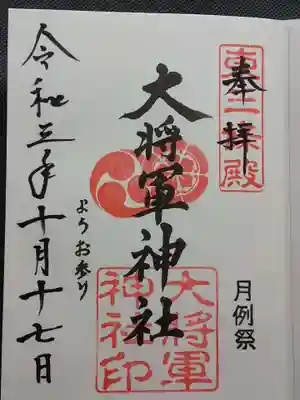 奉拝
東三条殿
月例祭
大将軍神社
大将軍
神社印
ようお参り
令和三年十月十七日